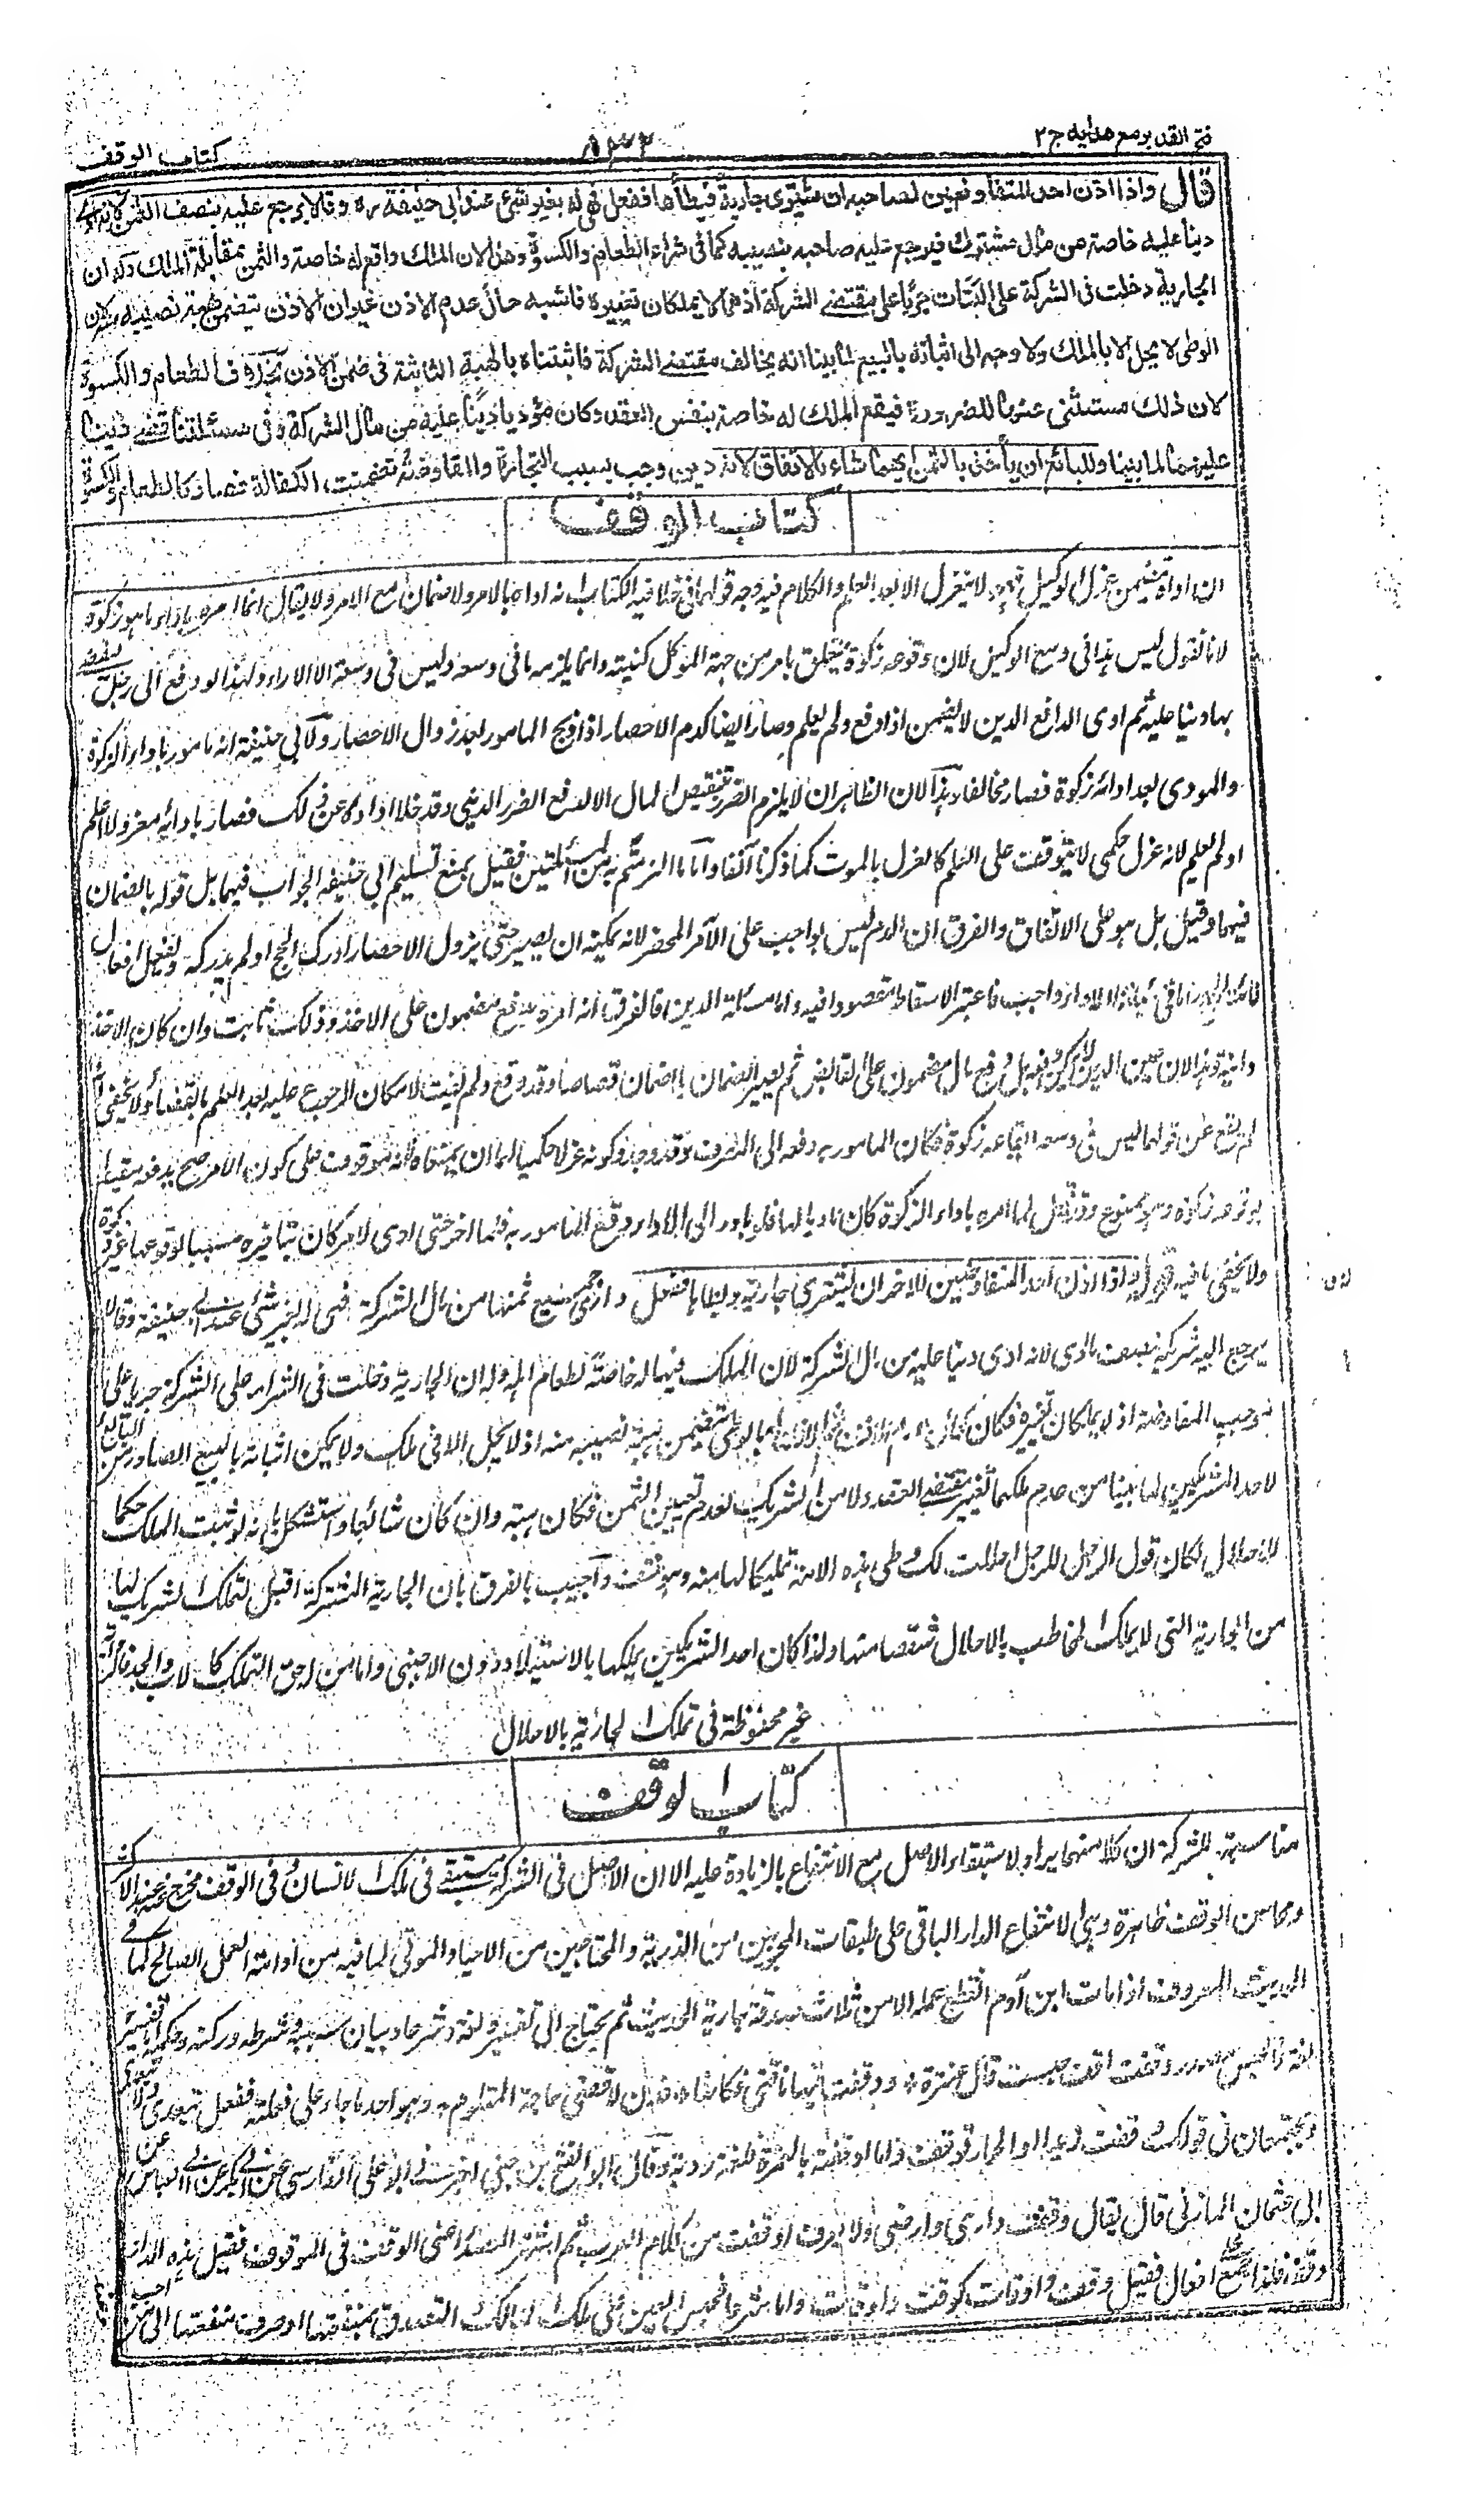 فتح القدير مع هدايه ج ٢
٨٣٢
كتاب الوقف
قال واذا اذن احد المتفاوضين لصاحبه ان يشترى جارية فيطأها ففعل فهى له بغير شئ عند ابى حنيفة رہ وقالا يرجع عليه بنصف الثمن لانه ادى
دينا عليه خاصة من مال مشترك فيرجع عليه صاحبه بنصيبه كما فى شراء الطعام والكسوة وهذا لان الملك واقع له خاصة والثمن بمقابلة الملك وله ان
الجارية دخلت فى الشركة على البتات جريا على مقتضى الشركة اذ هما لا يملكان تغييره فاشبه حال عدم الاذن غير ان الاذن يتضمن هبة نصيبه منه لان
الوطى لا يحل الا بالملك ولا وجه الى اثباته بالبيع لما بينا انه يخالف مقتضى الشركة فاثبتناه بالهبة الثابتة فى ضمن الاذن بخلاف الطعام والكسوة
لان ذلك مستثنى عنها للضرورة فيقع الملك له خاصة بنفس العقد وكان مؤديا دينا عليه من مال الشركة وفى مسئلتنا قضى دينا
عليهما لما بينا وللبائع ان يأخذ بالثمن ايهما شاء بالاتفاق لانه دين وجب بسبب التجارة والمفاوضة تضمنت الكفالة فصار كالطعام والكسوة
كتاب الوقف
ان اداءه يتضمن عزل الوكيل لا ينعزل الا بعد العلم والكلام فيه وجه قولهما فى خلافيه الكتاب انه اداه بالامر ولا ضمان مع الامر ولا يقال انما امره باداء ما هو زكوة
لانا نقول ليس هذا فى وسع الوكيل لان وقوعه زكوة يتعلق بامر من جهة الموكل كنيته وانما يلزمه ما فى وسعه وليس فى وسعه الا الاداء ولهذا لو دفع الى رجل ليقضى
بها دينا عليه ثم ادى الدافع الدين لا يضمن اذا دفع ولم يعلم وصار ايضا كدم الاحصار اذا ذبح المامور بعد زوال الاحصار ولابى حنيفة انه مامور باداء الزكوة
والمودى بعد ادائه زكوة فصار مخالفا وهذا لان الظاهر ان لا يلزم الضرر بتنقيص المال الا لدفع الضرر الدينى وقد خلا اداؤه عن ذلك فصار بادائه معزولا علم
او لم يعلم لانه عزل حكمى لا يتوقف على العلم كالعزل بالموت كما ذكرنا آنفا واما ما الزمتم به من المسئلتين فقيل بمنع تسليم ابى حنيفة الجواب فيهما بل قوله بالضمان
فيهما وقيل بل هو على الاتفاق والفرق ان الدم ليس بواجب على الآمر المحصر لانه يمكنه ان يصبر حتى يزول الاحصار ادرك الحج او لم يدركه ويفعل افعال
الاداء واجب فاعتبر الاسقاط مقصودا فيه واما مسئلة الدين فالفرق انه امره بدفع مضمون على الاخذ وذلك ثابت وان كان الاخذ
بل دفع مال مضمون على القابض ثم يصير الضمان بالضمان قصاصا وقد وقع ولم يفت لامكان الرجوع عليه بعد العلم بالقضاء ولا يخفى
لم يقع عن قولهما ليس فى وسعه ايقاعه زكوة فكان المامور به دفعه الى المصرف وقد وجد وكونه عزلا حكميا لهما ان يمنعاه لانه موقوف على كون الامر صح بدفعه مقيدا
بوقوعه زكوة وهو ممنوع لما امره باداء الزكوة كان وقع المامور به فلما اخر حتى ادى الآمر كان بتأخيره مسببا لوقوعها غير زكوة
ولا يخفى ما فيه قوله اذا اذن احد المتفاوضين للاخر ان يشترى جارية ويطأها ففعل وادى جميع ثمنها من مال الشركة فهى له بغير شئ عند ابى حنيفة وقالا
يرجع اليه شريكه بنصف ما ادى لانه ادى دينا عليه من مال الشركة لان الملك فيها له خاصة كطعام اهله وله ان الجارية دخلت فى الشراء على الشركة جريا على
موجب المفاوضة اذ لا يملكان تغييره فكان بالوطى يتضمن هبة نصيبه منه اذ لا يحل الا فى ملك ولا يمكن اثباته بالبيع الصادر من البائع
لاحد الشريكين لما بينا من عدم ملكهما تغيير مقتضى العقد ولا من الشريك لعدم تعيين الثمن فكان هبة وان كان شائعا واستشكل بانه لو ثبت الملك حكما
للاحلال لكان قول الرجل للرجل احللت لك وطى هذه الامة تمليكا لها منه وهو منتف واجيب بالفرق بان الجارية المشتركة اقبل لتملك الشريك لها
من الجارية التى لا يملك المخاطب بالاحلال شقصا منها ولذا كان احد الشريكين يملكها بالاستيلاد دون الاجنبى واما من له حق التملك كالاب والجد فالرواية
غير محفوظة فى تملك الجارية بالاحلال
كتاب الوقف
مناسبته للشركة ان كلا منهما يراد لاستبقاء الاصل مع الانتفاع بالزيادة عليه الا ان الاصل فى الشركة مستبقى فى ملك الانسان وفى الوقف مخرج عنه عند الاكثر
ومحاسن الوقف ظاهرة وهى الانتفاع الدار الباقى على طبقات المحبوبين من الذرية والمحتاجين من الاحياء والموتى لما فيه من ادامة العمل الصالح كما فى
الحديث المعروف اذا مات ابن آدم انقطع عمله الا من ثلاث صدقة جارية الحديث ثم يحتاج الى تفسيره لغة وشرعا وبيان سببه وشرطه وركنه وحكمه اما تفسيره
لغة فالحبس مصدر وقفت اقف حبست قال عنترة ووقفت فيها ناقتى فكانها فدن لاقضى حاجة المتلوم وهو احد ما جاء على فعلته ففعل يتعدى ولا يتعدى
ويجتمعان فى قولك وقفت زيدا او الحمار فوقف واما اوقفته بالهمزة فلغة ردية وقال ابو الفتح بن جنى اخبرنى ابو على الفارسى عن ابى بكر عن ابى العباس عن
ابى عثمان المازنى قال يقال وقفت دارى وارضى ولا يعرف اوقفت من كلام العرب ثم اشتهر المصدر اعنى الوقف فى الموقوف فقيل هذه الدار
وقف فلذا جمع افعال فقيل وقف واوقاف كوقت واوقات واما شرعا فحبس العين على ملك المالك التصدق بمنفعتها او صرف منفعتها الى من احب